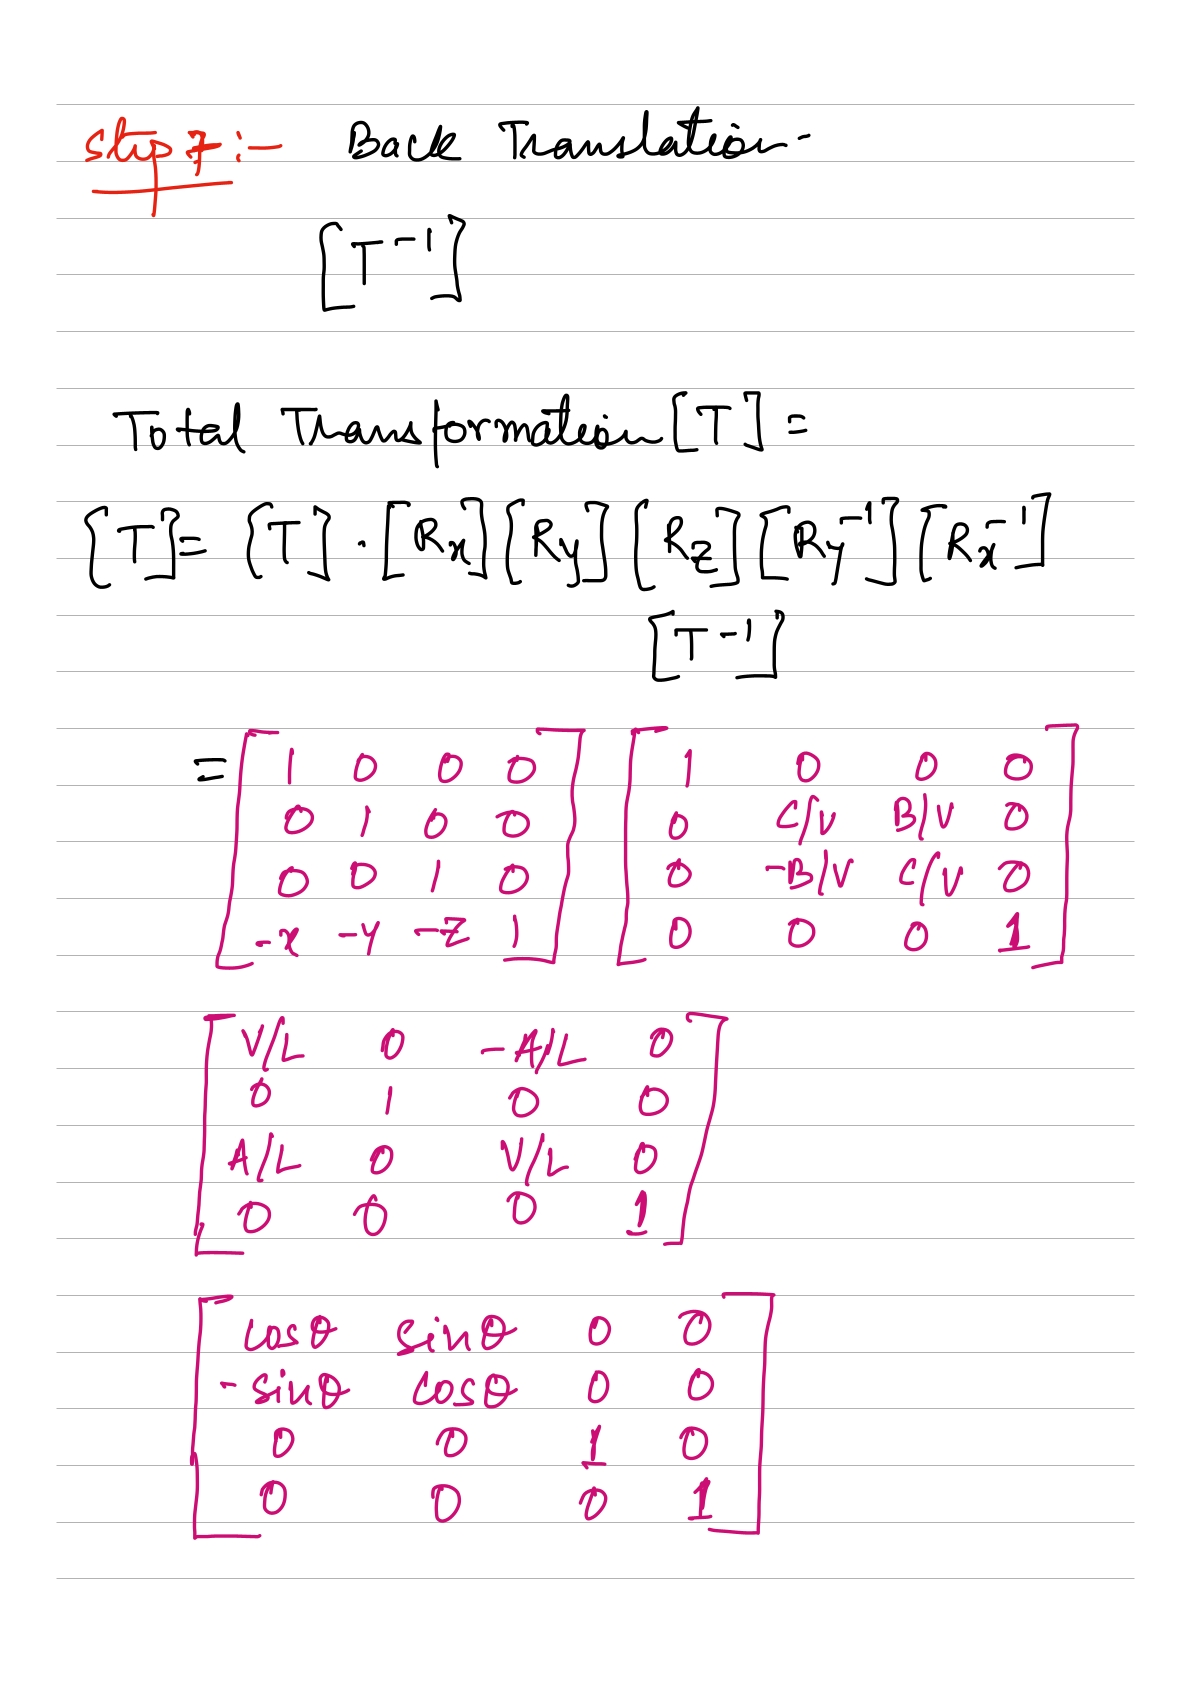 Step 7 :-   Back Translation-
[T⁻¹]
Total Transformation [T] =
[T] = [T] . [Rx] [Ry] [Rz] [Ry⁻¹] [Rx⁻¹]
[T⁻¹]
= [1 0 0 0] [1 0 0 0]
[0 1 0 0] [0 C/V B/V 0]
[0 0 1 0] [0 -B/V C/V 0]
[-x -y -z 1] [0 0 0 1]
[V/L 0 -A/L 0]
[0 1 0 0]
[A/L 0 V/L 0]
[0 0 0 1]
[cosθ sinθ 0 0]
[-sinθ cosθ 0 0]
[0 0 1 0]
[0 0 0 1]